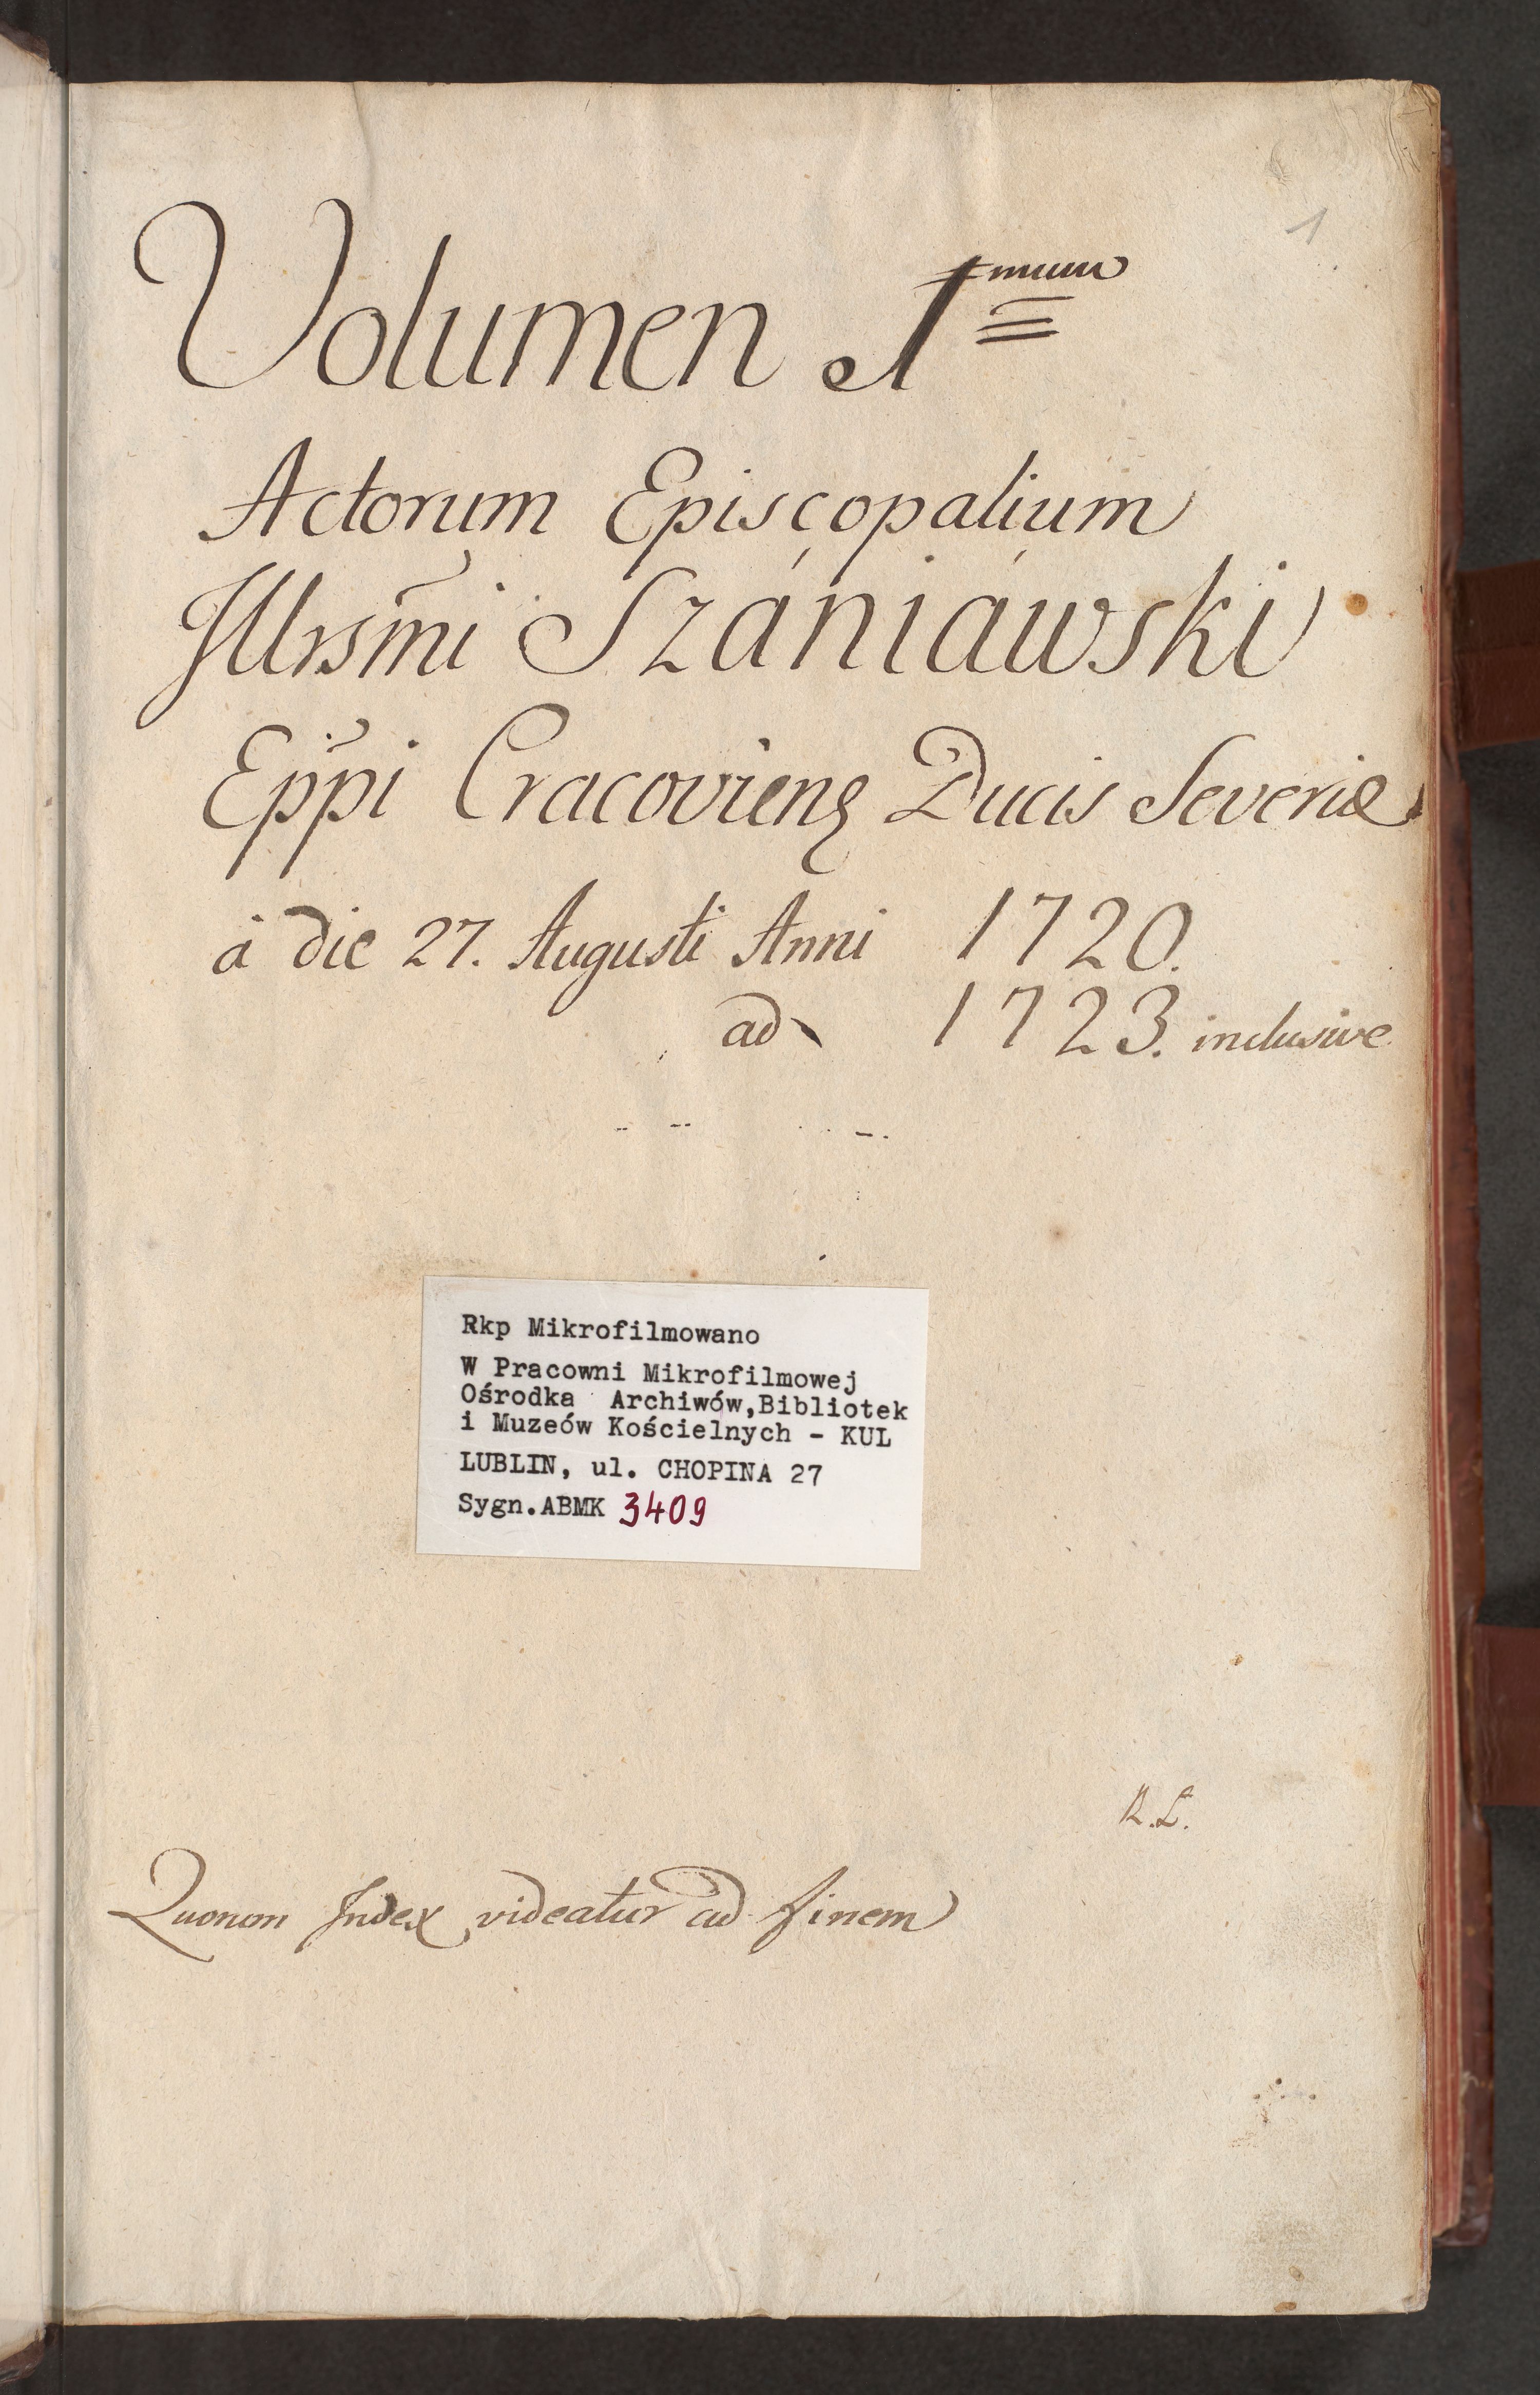 1
Volumen 1mum
Actorum Episcopalium
Illrsm̃i Szániáwski
Epp̃i Cracovieng Ducis Severiæ
à die 27. Augusti Anni 1720.
ad 1723. inclusive
Rkp Mikrofilmowano
W Pracowni Mikrofilmowej
Ośrodka Archiwów,Bibliotek
i Muzeów Kościelnych - KUL
LUBLIN, ul. CHOPINA 27
Sygn.ABMK 3409
R.L.
Quorum Index videatur ad finem